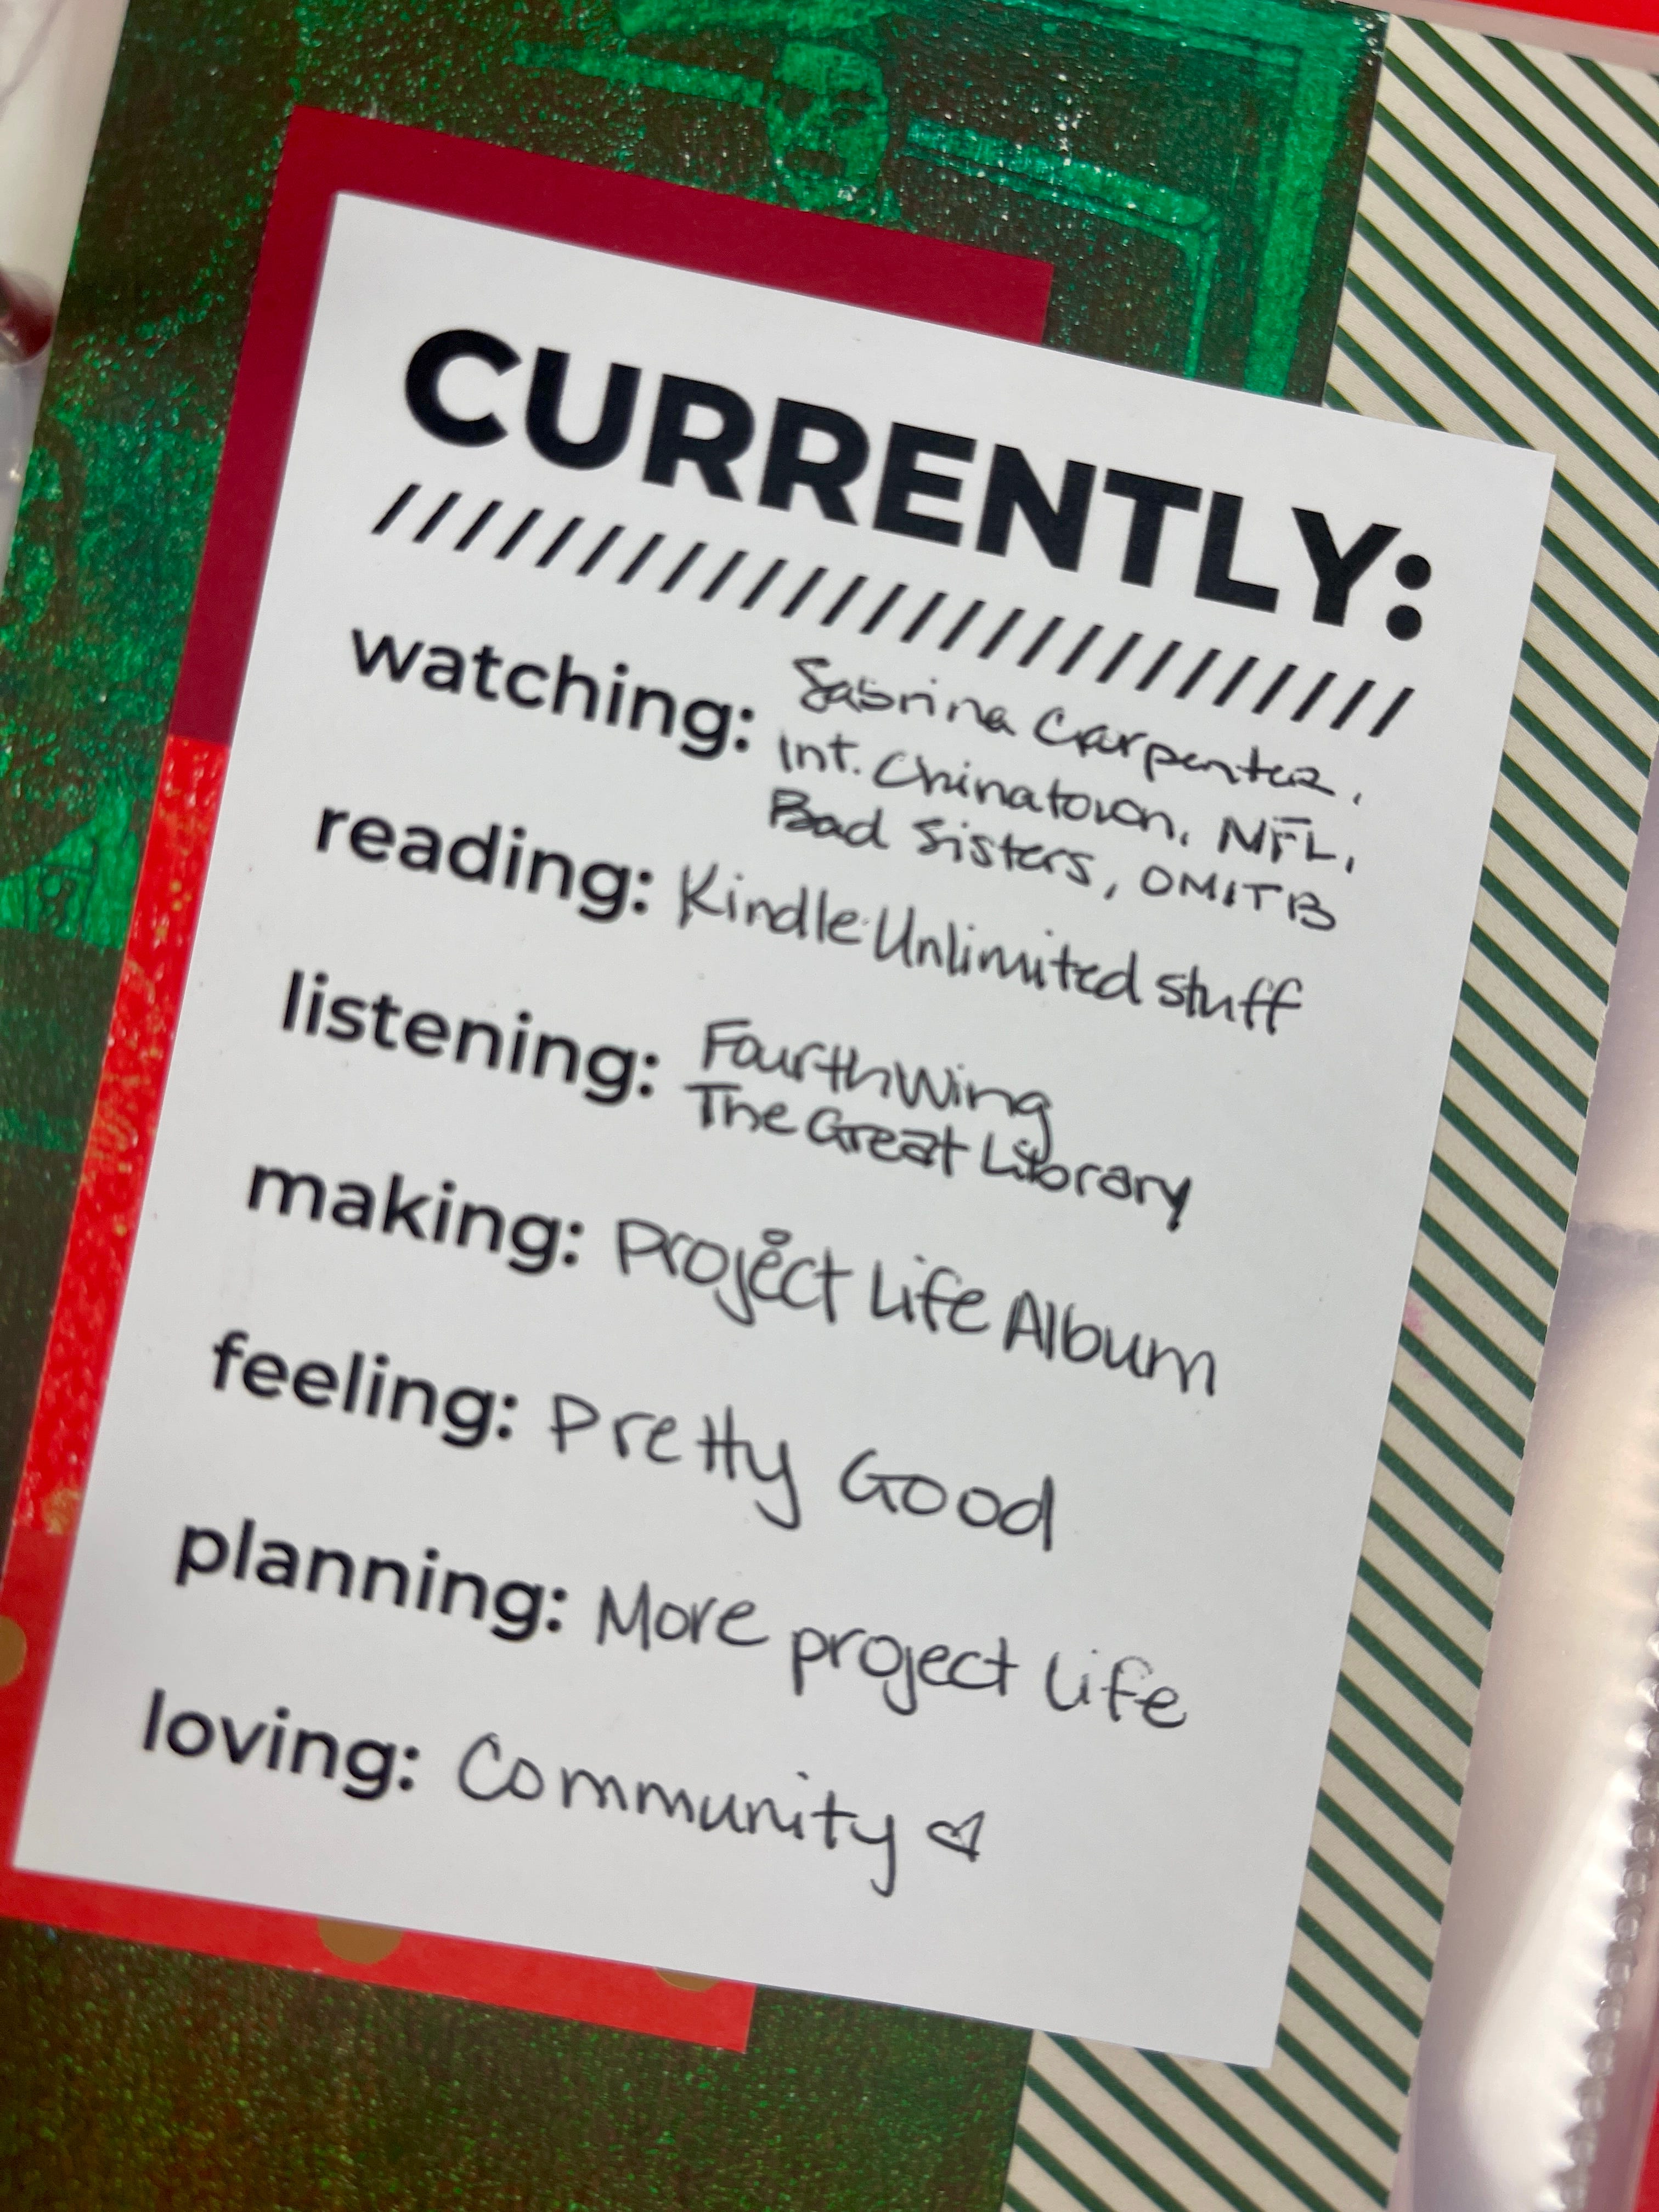 CURRENTLY:
////////////////////////
watching: Sabrina Carpenter,
Int. Chinatown, NFL,
Bad Sisters, OMITB
reading: Kindle Unlimited stuff
listening: Fourth Wing
The Great Library
making: Project Life Album
feeling: Pretty Good
planning: More project life
loving: Community ♡